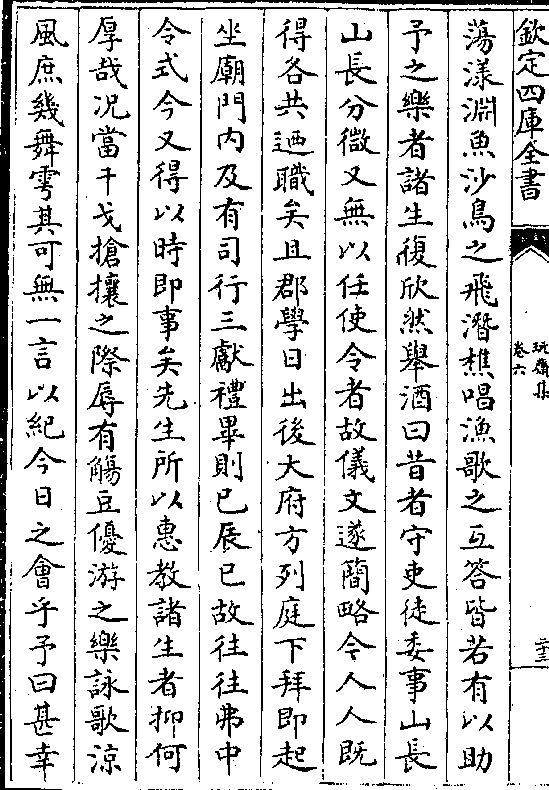 欽定四庫全書
玩齋集
卷六
二十三
蕩漾淵魚沙鳥之飛潛樵唱漁歌之互答皆若有以助
予之樂者諸生復欣然舉酒曰昔者守吏徒委事山長
山長分微又無以任使令者故儀文遂簡略令人人既
得各共迺職矣且郡學日出後大府方列庭下拜即起
坐廟門内及有司行三獻禮畢則已辰巳故往往弗中
令式今又得以時即事矣先生所以惠教諸生者抑何
厚哉况當干戈搶攘之際辱有觴豆優游之樂詠歌涼
風庶幾舞雩其可無一言以紀今日之會乎予曰甚幸